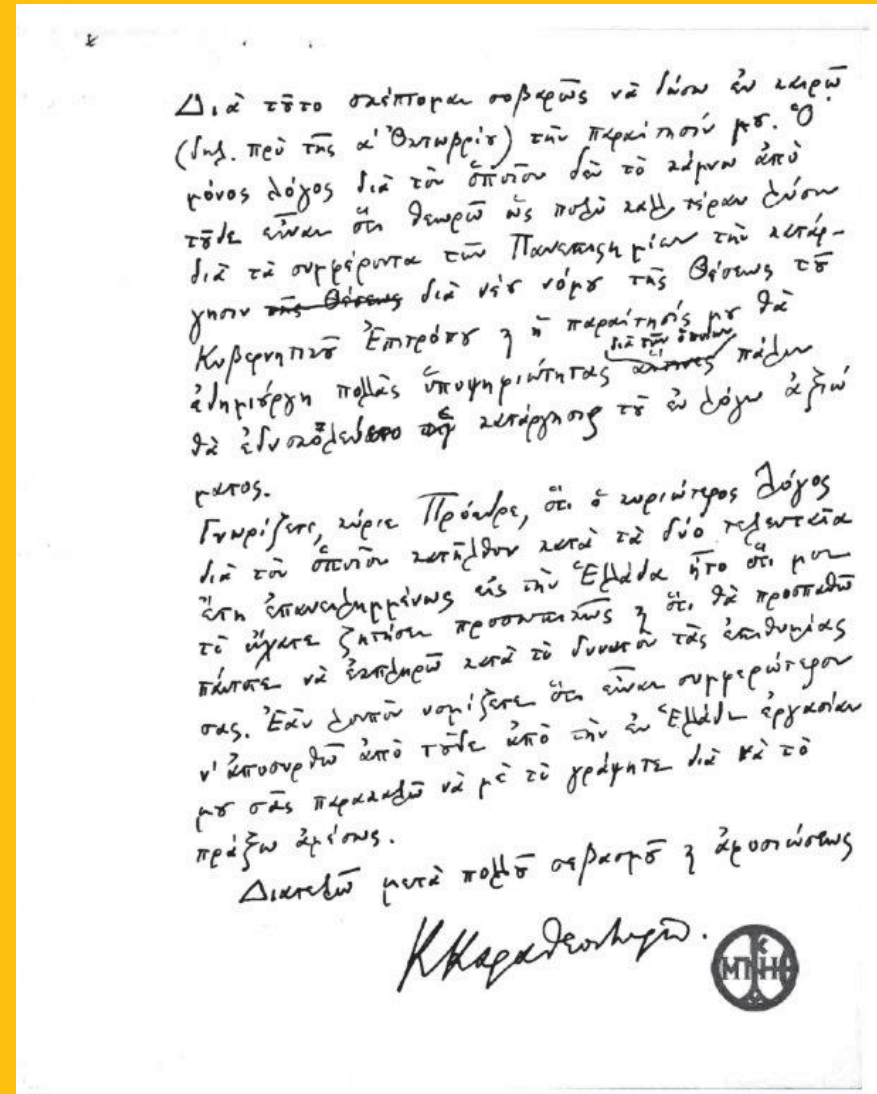 Διὰ τοῦτο σκέπτομαι σοβαρῶς νὰ δώσω ἐν καιρῷ
(δηλ. πρὸ τῆς α' Ὀκτωβρίου) τὴν παραίτησίν μου. Ὁ
μόνος λόγος διὰ τὸν ὁποῖον δὲν τὸ κάμνω ἀπὸ
τοῦδε εἶναι ὅτι θεωρῶ ὡς πολὺ καλλιτέραν λύσιν
διὰ τὰ συμφέροντα τῶν Πανεπιστημίων τὴν κατάρ-
γησιν τῆς Θέσεως διὰ νέου νόμου τῆς Θέσεως τοῦ
Κυβερνητικοῦ Ἐπιτρόπου ϗ ἡ παραίτησίς μου θὰ
διὰ τῶν ὁποίων
ἐδημιούργη πολλὰς ὑποψηφιότητας αἵτινες πάλιν
θὰ ἐδυσκόλευε κατάργησις τοῦ ἐν λόγῳ ἀξιώ
ματος.
Γνωρίζετε, κύριε Πρόεδρε, ὅτι ὁ κυριώτερος λόγος
διὰ τὸν ὁποῖον κατῆλθον κατὰ τὰ δύο τελευταῖα
ἔτη ἐπανειλημμένως εἰς τὴν Ἑλλάδα ἦτο ὅτι μοι
τὸ εἴχατε ζητήσει προσωπικῶς ϗ ὅτι θὰ προσπαθῶ
πάντοτε νὰ ἐκπληρῶ κατὰ τὸ δυνατὸν τὰς ἐπιθυμίας
σας. Ἐὰν λοιπὸν νομίζετε ὅτι εἶναι συμφερώτερον
ν' ἀποσυρθῶ ἀπὸ τοῦδε ἀπὸ τὴν ἐν Ἑλλάδι ἐργασίαν
μου σᾶς παρακαλῶ νὰ μὲ τὸ γράψητε διὰ νὰ τὸ
πράξω ἀμέσως.
Διατελῶ μετὰ πολλοῦ σεβασμοῦ ϗ ἀφοσιώσεως
Κ Καραθεοδωρῆ.
ΜΙΗΘ